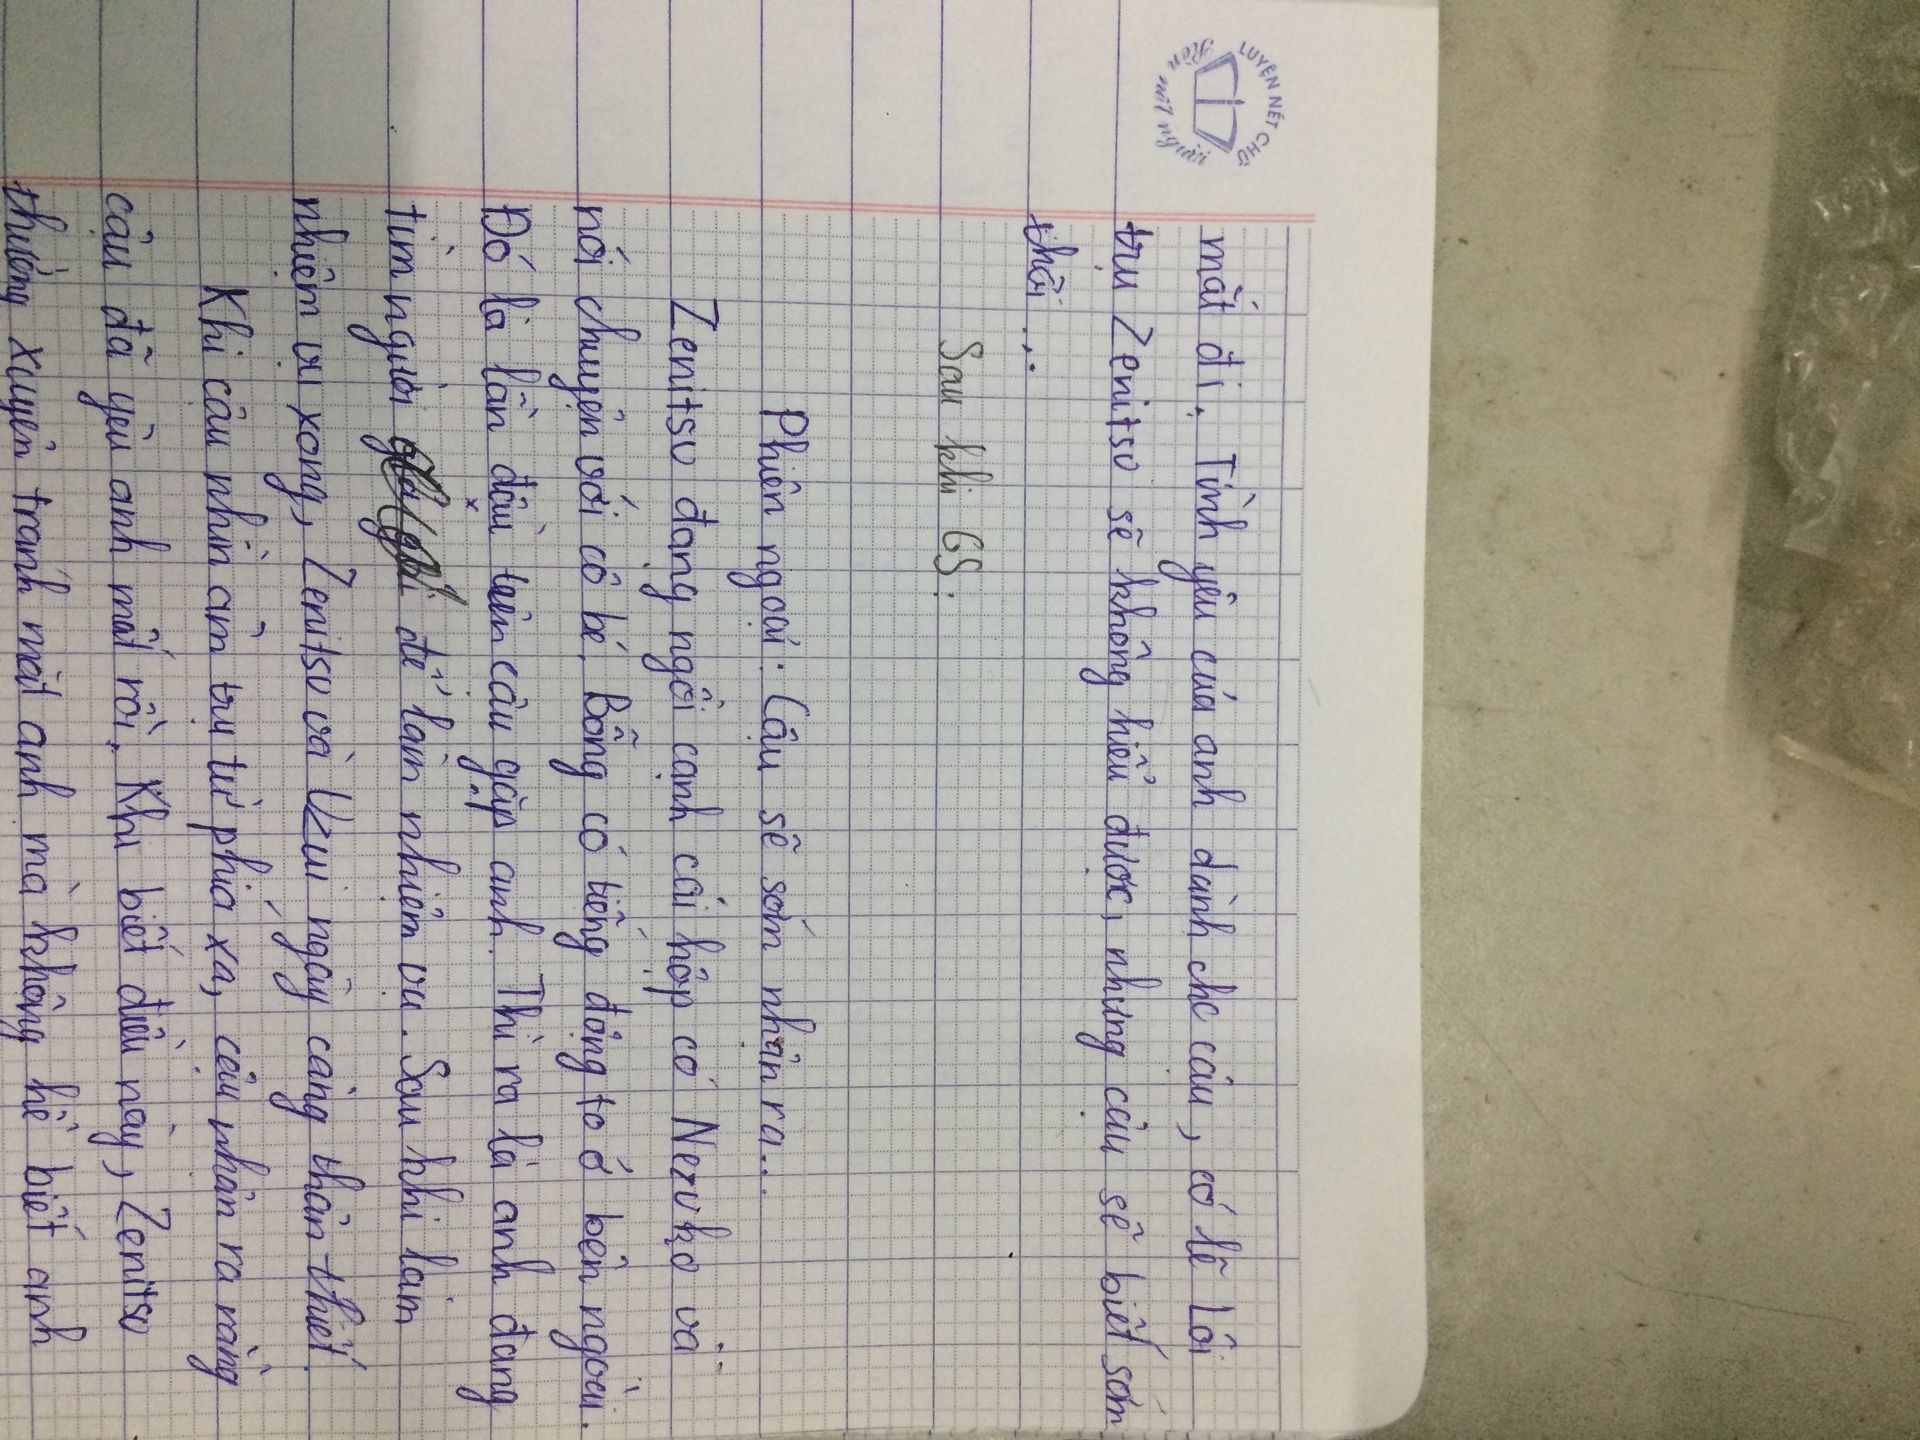 LUYỆN NÉT CHỮ
Rèn nết người
mất đi. Tình yêu của anh dành cho cậu, có lẽ Lôi
trụ Zenitsu sẽ không hiểu được, nhưng cậu sẽ biết sớm
thôi...
Sau khi GS.
Phiên ngoại: Cậu sẽ sớm nhận ra...
Zenitsu đang ngồi cạnh cái hộp có Nezuko và
nói chuyện với cô bé. Bỗng có tiếng động to ở bên ngoài.
Đó là lần đầu tiên cậu gặp anh. Thì ra là anh đang
tìm người để làm nhiệm vụ. Sau khi làm
nhiệm vụ xong, Zenitsu và Uzui ngày càng thân thiết.
Khi cậu nhìn âm trụ từ phía xa, cậu nhận ra rằng
cậu đã yêu anh mất rồi. Khi biết điều này, Zenitsu
thường xuyên tránh mặt anh mà không hề biết anh